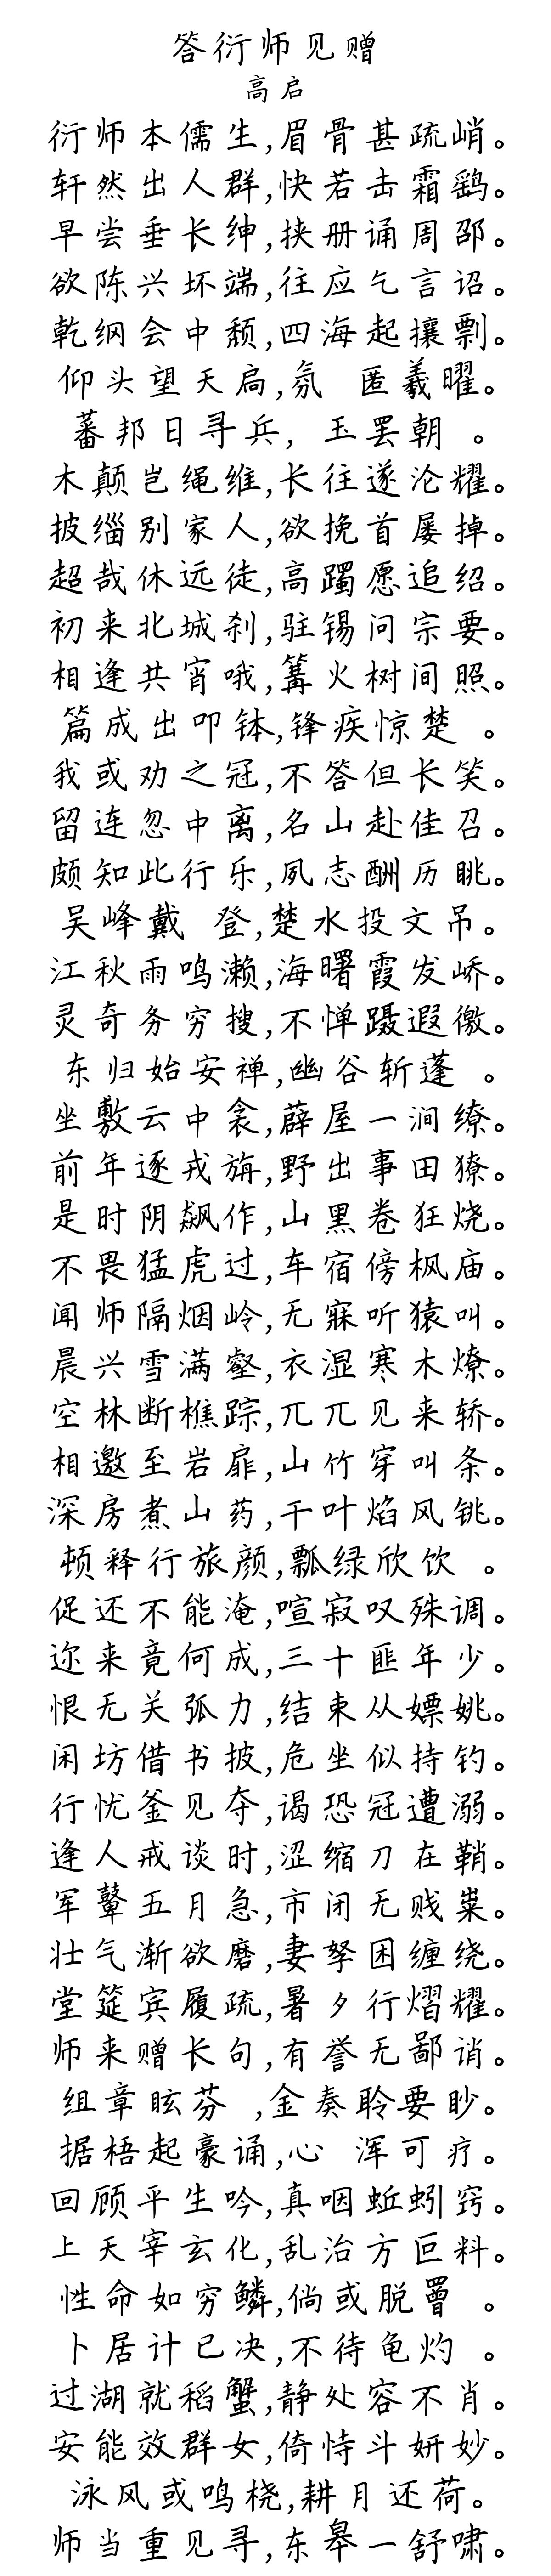 答衍师见赠
高启
衍师本儒生,眉骨甚疏峭。
轩然出人群,快若击霜鹞。
早尝垂长绅,挟册诵周邵。
欲陈兴坏端,往应乞言诏。
乾纲会中颓,四海起攘剽。
仰头望天扃,氛 匿羲曜。
蕃邦日寻兵, 玉罢朝 。
木颠岂绳维,长往遂沦耀。
披缁别家人,欲挽首屡掉。
超哉休远徒,高躅愿追绍。
初来北城刹,驻锡问宗要。
相逢共宵哦,篝火树间照。
篇成出叩钵,锋疾惊楚 。
我或劝之冠,不答但长笑。
留连忽中离,名山赴佳召。
颇知此行乐,夙志酬历眺。
吴峰戴 登,楚水投文吊。
江秋雨鸣濑,海曙霞发峤。
灵奇务穷搜,不惮蹑遐徼。
东归始安禅,幽谷斩蓬 。
坐敷云中衾,薜屋一涧缭。
前年逐戎旃,野出事田獠。
是时阴飙作,山黑卷狂烧。
不畏猛虎过,车宿傍枫庙。
闻师隔烟岭,无寐听猿叫。
晨兴雪满壑,衣湿寒木燎。
空林断樵踪,兀兀见来轿。
相邀至岩扉,山竹穿叫条。
深房煮山药,干叶焰风铫。
顿释行旅颜,瓢绿欣饮 。
促还不能淹,喧寂叹殊调。
迩来竟何成,三十匪年少。
恨无关弧力,结束从嫖姚。
闲坊借书披,危坐似持钓。
行忧釜见夺,谒恐冠遭溺。
逢人戒谈时,涩缩刀在鞘。
军鼙五月急,市闭无贱粜。
壮气渐欲磨,妻孥困缠绕。
堂筵宾履疏,暑夕行熠耀。
师来赠长句,有誉无鄙诮。
组章眩芬 ,金奏聆要眇。
据梧起豪诵,心 浑可疗。
回顾平生吟,真咽蚯蚓窍。
上天宰玄化,乱治方叵料。
性命如穷鳞,倘或脱罾 。
卜居计已决,不待龟灼 。
过湖就稻蟹,静处容不肖。
安能效群女,倚恃斗妍妙。
泳风或鸣桡,耕月还荷。
师当重见寻,东皋一舒啸。